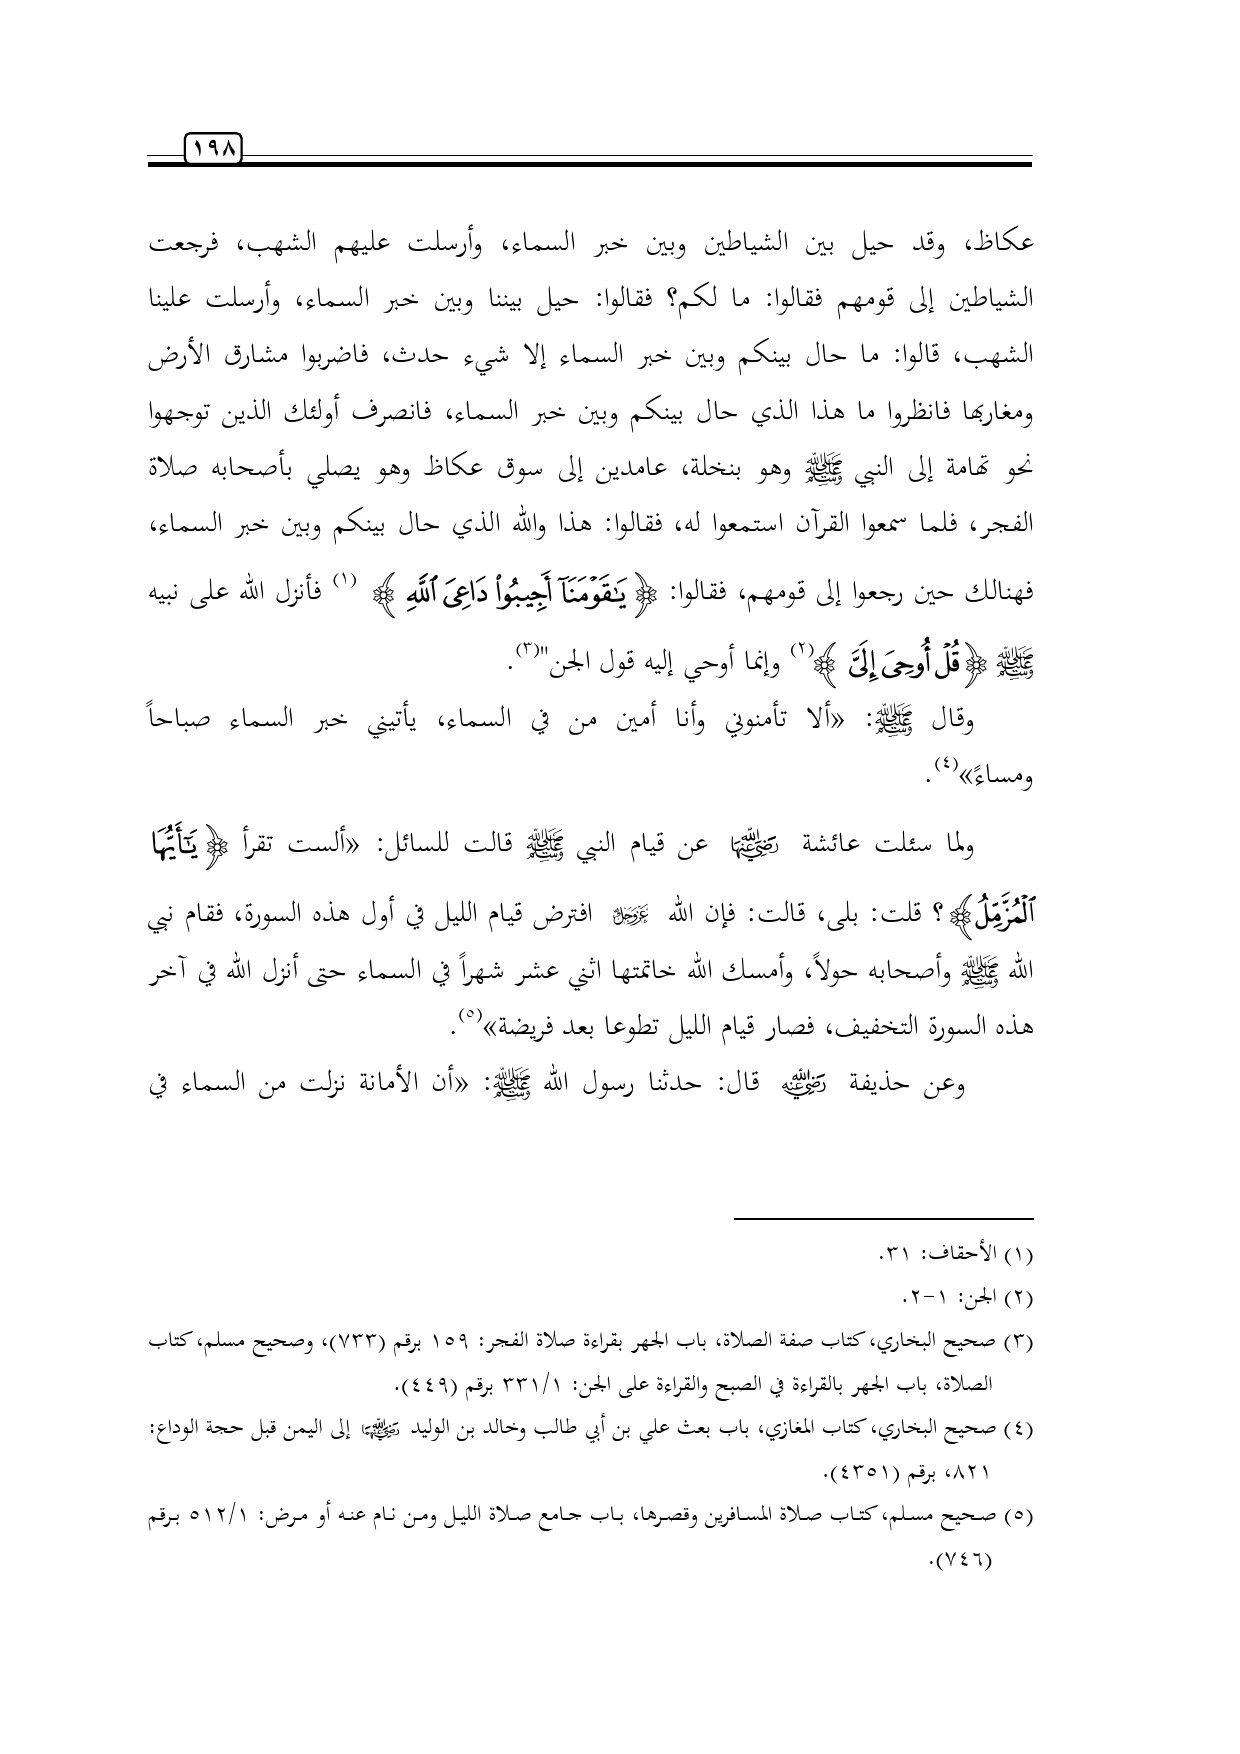 ١٩٨
عكاظ، وقد حيل بين الشياطين وبين خبر السماء، وأرسلت عليهم الشهب، فرجعت
الشياطين إلى قومهم فقالوا: ما لكم؟ فقالوا: حيل بيننا وبين خبر السماء، وأرسلت علينا
الشهب، قالوا: ما حال بينكم وبين خبر السماء إلا شيء حدث، فاضربوا مشارق الأرض
ومغاربها فانظروا ما هذا الذي حال بينكم وبين خبر السماء، فانصرف أولئك الذين توجهوا
نحو تهامة إلى النبي ﷺ وهو بنخلة، عامدين إلى سوق عكاظ وهو يصلي بأصحابه صلاة
الفجر، فلما سمعوا القرآن استمعوا له، فقالوا: هذا والله الذي حال بينكم وبين خبر السماء،
فهنالك حين رجعوا إلى قومهم، فقالوا: ﴿ يَٰقَوۡمَنَآ أَجِيبُواْ دَاعِيَ ٱللَّهِ ﴾ (١) فأنزل الله على نبيه
ﷺ ﴿قُلۡ أُوحِيَ إِلَيَّ ﴾(٢) وإنما أوحي إليه قول الجن"(٣).
وقال ﷺ: «ألا تأمنوني وأنا أمين من في السماء، يأتيني خبر السماء صباحاً
ومساءً»(٤).
ولما سئلت عائشة رضي الله عنها عن قيام النبي ﷺ قالت للسائل: «ألست تقرأ ﴿ يَٰٓأَيُّهَا
ٱلۡمُزَّمِّلُ﴾ ؟ قلت: بلى، قالت: فإن الله عز وجل افترض قيام الليل في أول هذه السورة، فقام نبي
الله ﷺ وأصحابه حولاً، وأمسك الله خاتمتها اثني عشر شهراً في السماء حتى أنزل الله في آخر
هذه السورة التخفيف، فصار قيام الليل تطوعا بعد فريضة»(٥).
وعن حذيفة رضي الله عنه قال: حدثنا رسول الله ﷺ: «أن الأمانة نزلت من السماء في
(١) الأحقاف: ٣١.
(٢) الجن: ١-٢.
(٣) صحيح البخاري، كتاب صفة الصلاة، باب الجهر بقراءة صلاة الفجر: ١٥٩ برقم (٧٣٣)، وصحيح مسلم، كتاب
الصلاة، باب الجهر بالقراءة في الصبح والقراءة على الجن: ٣٣١/١ برقم (٤٤٩).
(٤) صحيح البخاري، كتاب المغازي، باب بعث علي بن أبي طالب وخالد بن الوليد رضي الله عنهما إلى اليمن قبل حجة الوداع:
٨٢١، برقم (٤٣٥١).
(٥) صحيح مسلم، كتاب صلاة المسافرين وقصرها، باب جامع صلاة الليل ومن نام عنه أو مرض: ٥١٢/١ برقم
(٧٤٦).